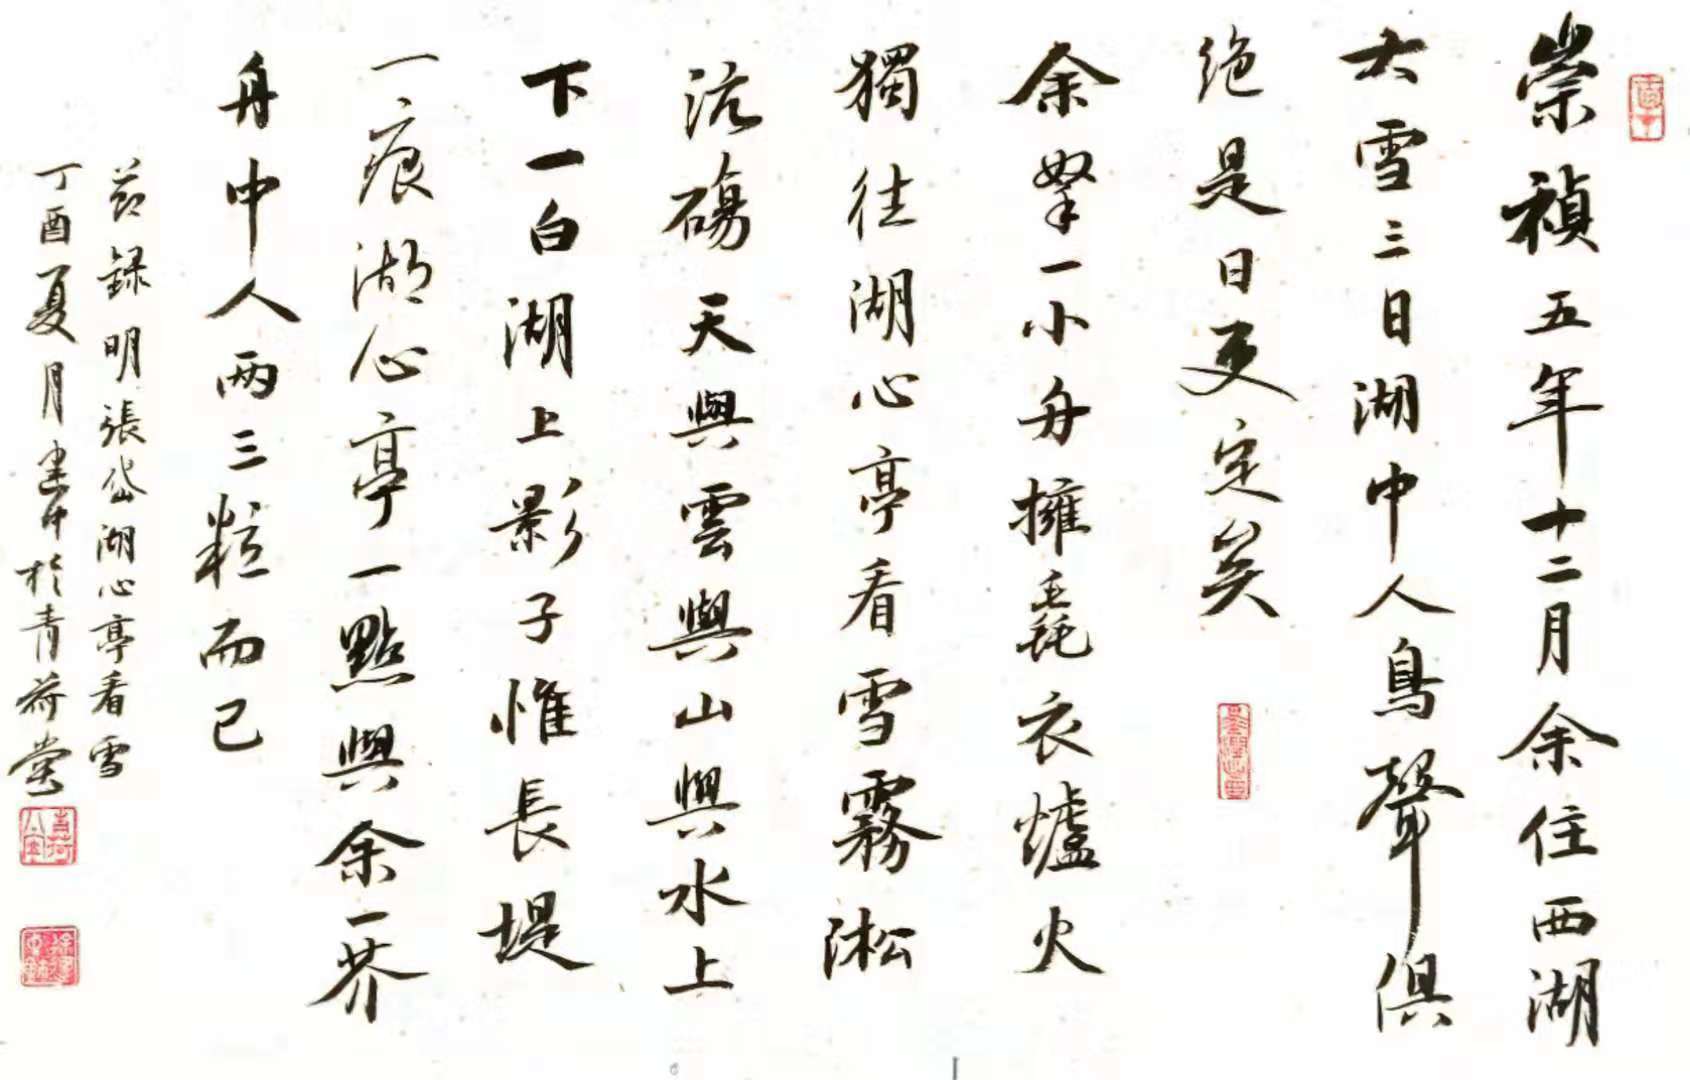 崇禎五年十二月余住西湖
大雪三日湖中人鳥聲俱
绝是日更定矣
余拏一小舟擁毳衣爐火
獨往湖心亭看雪霧淞
沆碭天與雲與山與水上
下一白湖上影子惟長堤
一痕湖心亭一點與余一芥
舟中人两三粒而已
節録明張岱湖心亭看雪
丁酉夏月建中於青荷堂